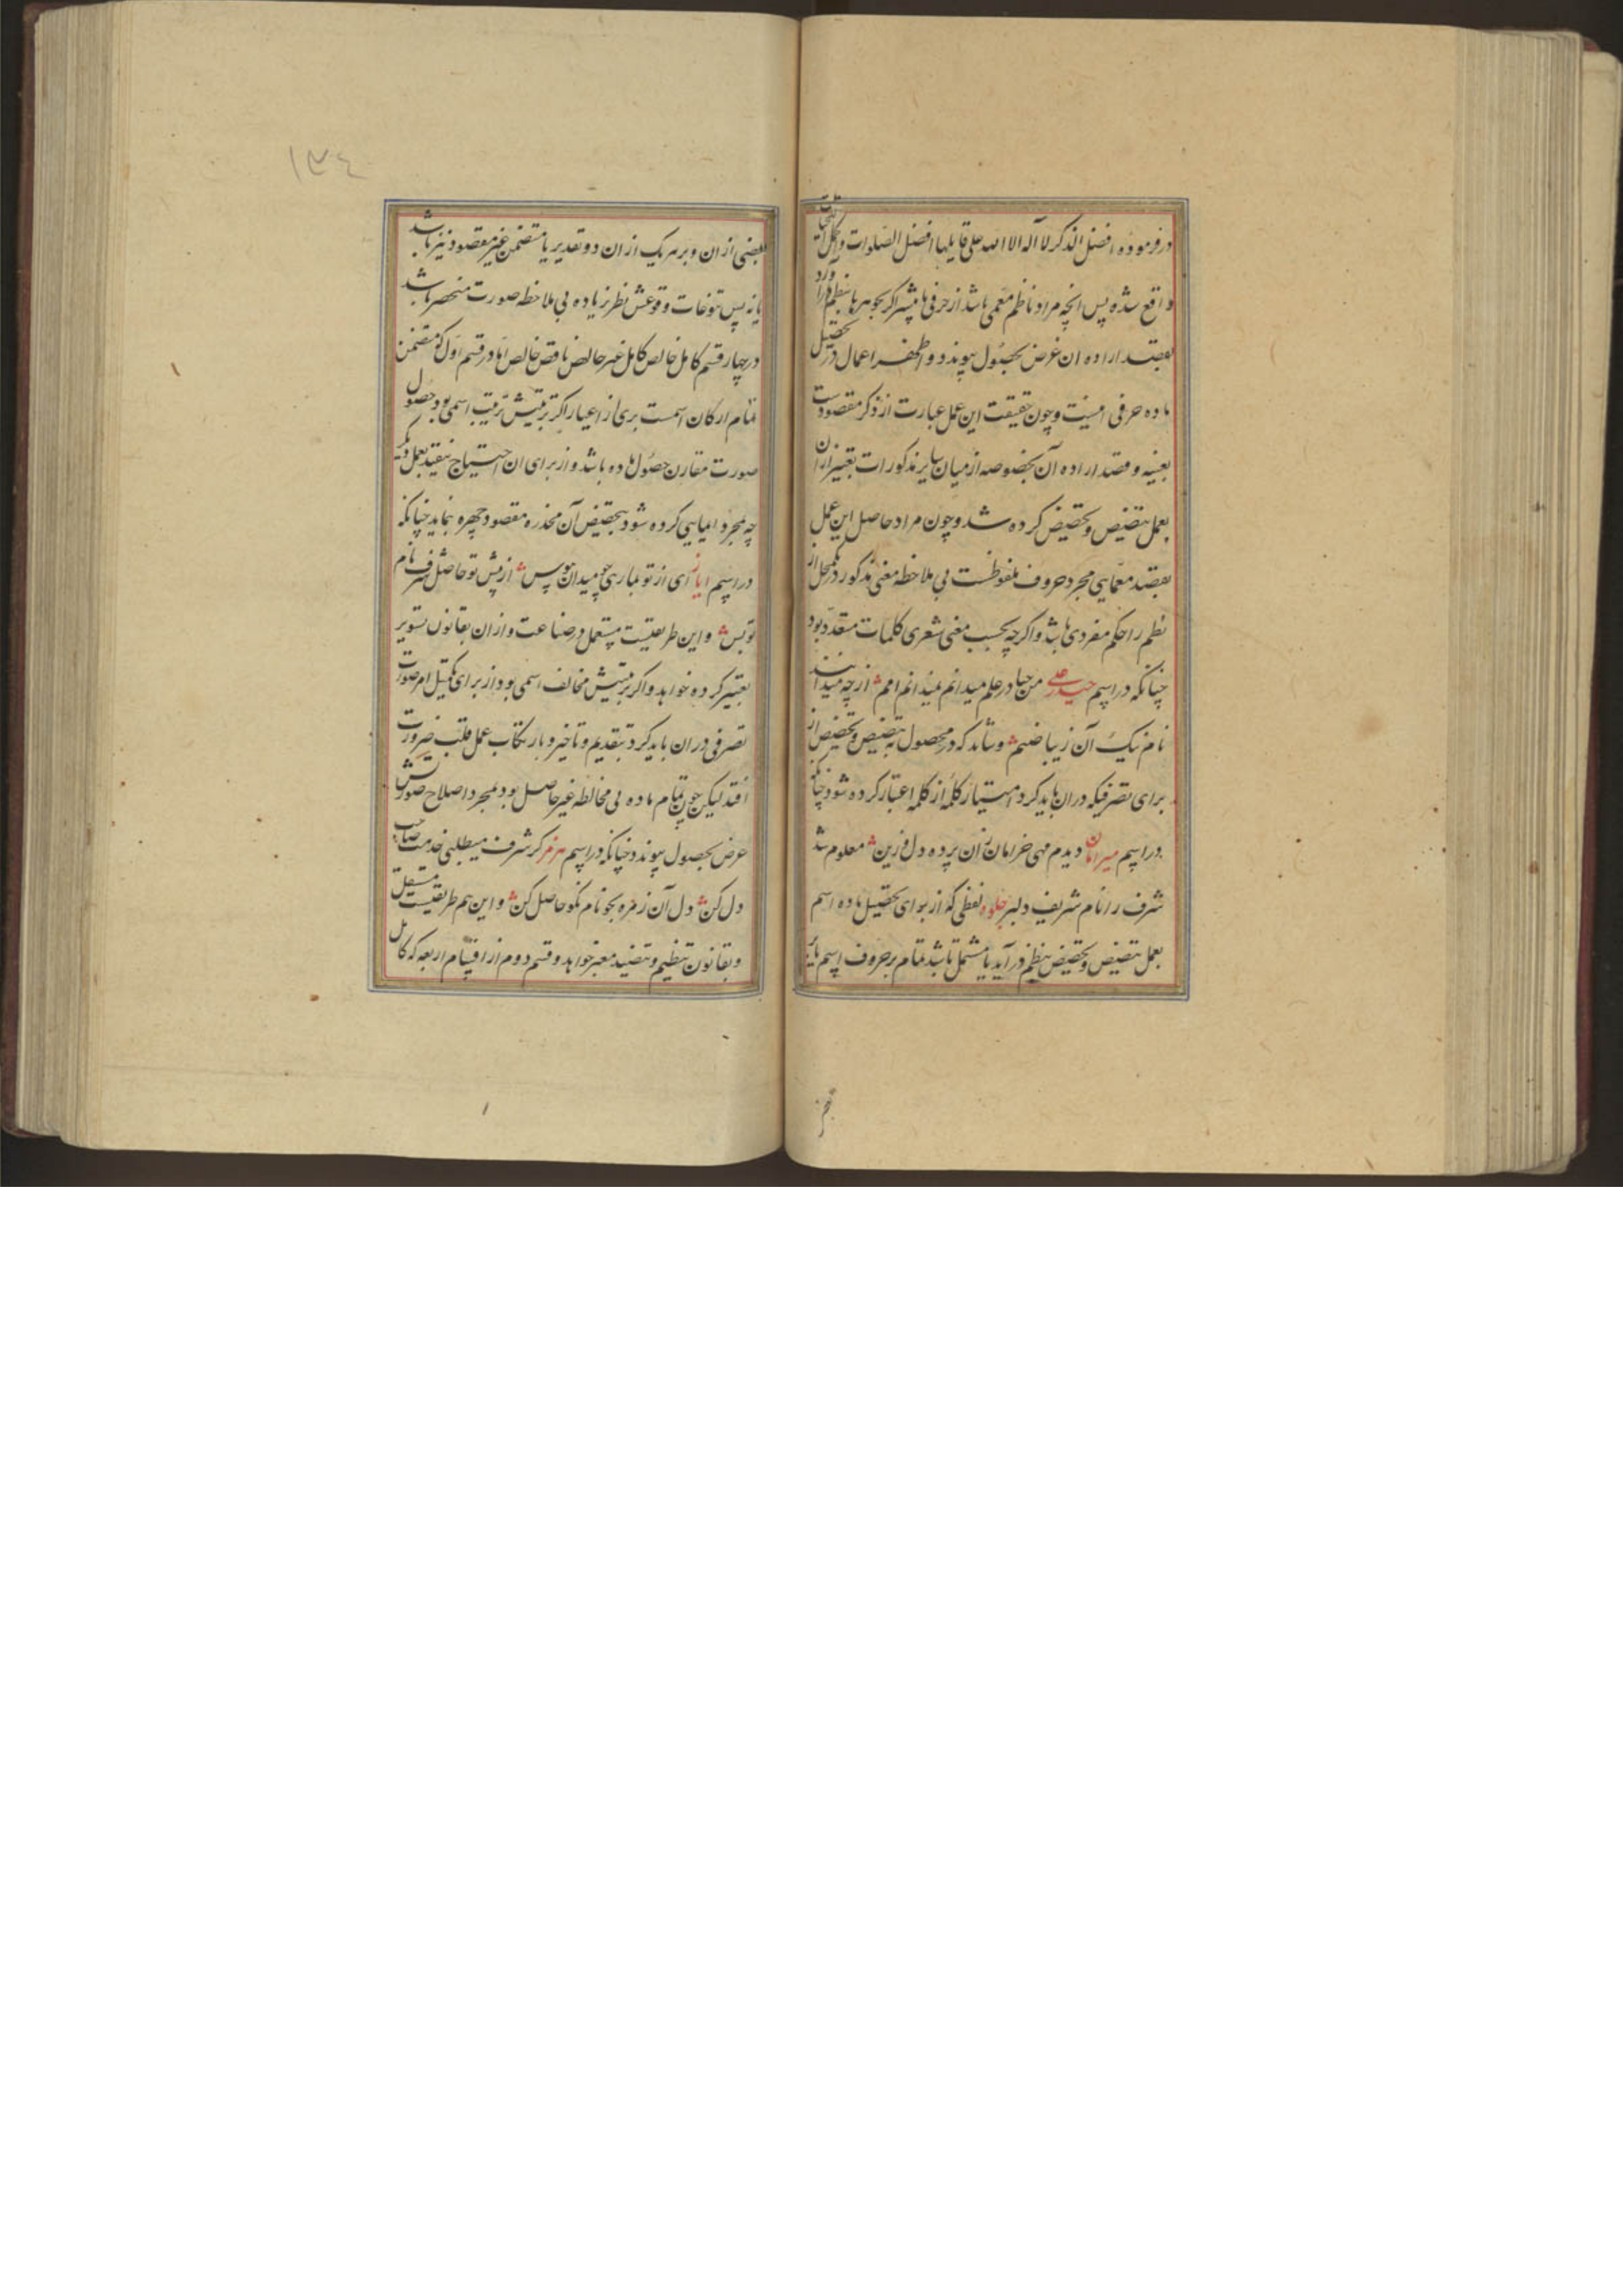 در فرموده افضل الذکر لا آله الا الله علی قایلها افضل الصلوات و اکمل التحیات
واقع شده پس انچه مراد ناظم معمی باشد از حرفی یا بیشتر اکر بجوهرها بنظم درآورد
بقصد اراده ان غرض بحصول پیوندد و اعمال در تحصیل
ماده حرفی اینست و چون حقیقت این عمل عبارت از ذکر مقصودست
بعینه و قصد اراده آن بخصوصه از میان سایر مذکورات تعبیر ازان
بعمل تنصیص و تخصیص کرده شد و چون مراد حاصل این عمل
بقصد معمایی مجرد حروف ملفوظست بی ملاحظه معنی مذکور در یکمحل از
نظم را حکم مفردی باشد و اکرچه بحسب معنی شعری کلمات متعدد بود
چنانکه در اسم حیدر علی من حیا در علم میدانم نمیدانم امم از چه میدانند
نام نیک آن زیبا صنم و شاید که در محصول به تنصیص و تخصیص از
برای تصرفیکه دران باید کرد امتیاز کلمهٔ از کلمه اعتبار کرده شود چنانکه
در اسم میرامان دیدم مهی خرامان زان پرده دل فزین معلوم شد
شرف را نام شریف دلبر جلوه لفظی که از برای تحصیل ماده اسم
بعمل تنصیص و تخصیص بنظم درآید یا مشتمل باشد تمام بر حروف اسم یا بر
١٣٤
بعضی ازان و بر هر یک ازان دو تقدیر یا متضمن غیر مقصود نیز باشد
یا نه پس تنوعات وقوعش نظر بماده بی ملاحظه صورت منحصر باشد
در چهار قسم کامل خالص کامل غیر خالص ناقص خالص اما در قسم اول که متضمن
تمام ارکان اسمست بری از اغیار اکر ترتیبش ترتیب اسمی بود حصول
صورت مقارن حصول ماده باشد و از برای ان احتیاج نیفتد بعمل دیکر
چه بمجرد ایمایی کرده شود بتخصیص آن مخدره مقصود چهره نماید چنانکه
در اسم ایاز ای از تو بازی میدان هوس از پیش تو حاصل شرف نام
تو بس و این طریقیست مستعمل در صناعت و ازان بقانون تسویر
تعبیر کرده خواهد و اکر ترتیبش مخالف اسمی بود از برای تکمیل امر صورت
تصرفی دران باید کرد بتقدیم و تاخیر و بارتکاب عمل قلب ضرورت
افتد لیکن چون تمام ماده بی مخالطه غیر حاصل بود بمجرد اصلاح صورتش
غرض بحصول پیوندد چنانکه در اسم هرمز کر شرف میطلبی خدمت صاحب
دل کن دل آن زمره بجو نام نکو حاصل کن و این هم طریقیست مستقل
و بقانون تنظیم و تنضید معبر خواهد و قسم دوم از اقسام اربعه که کامل